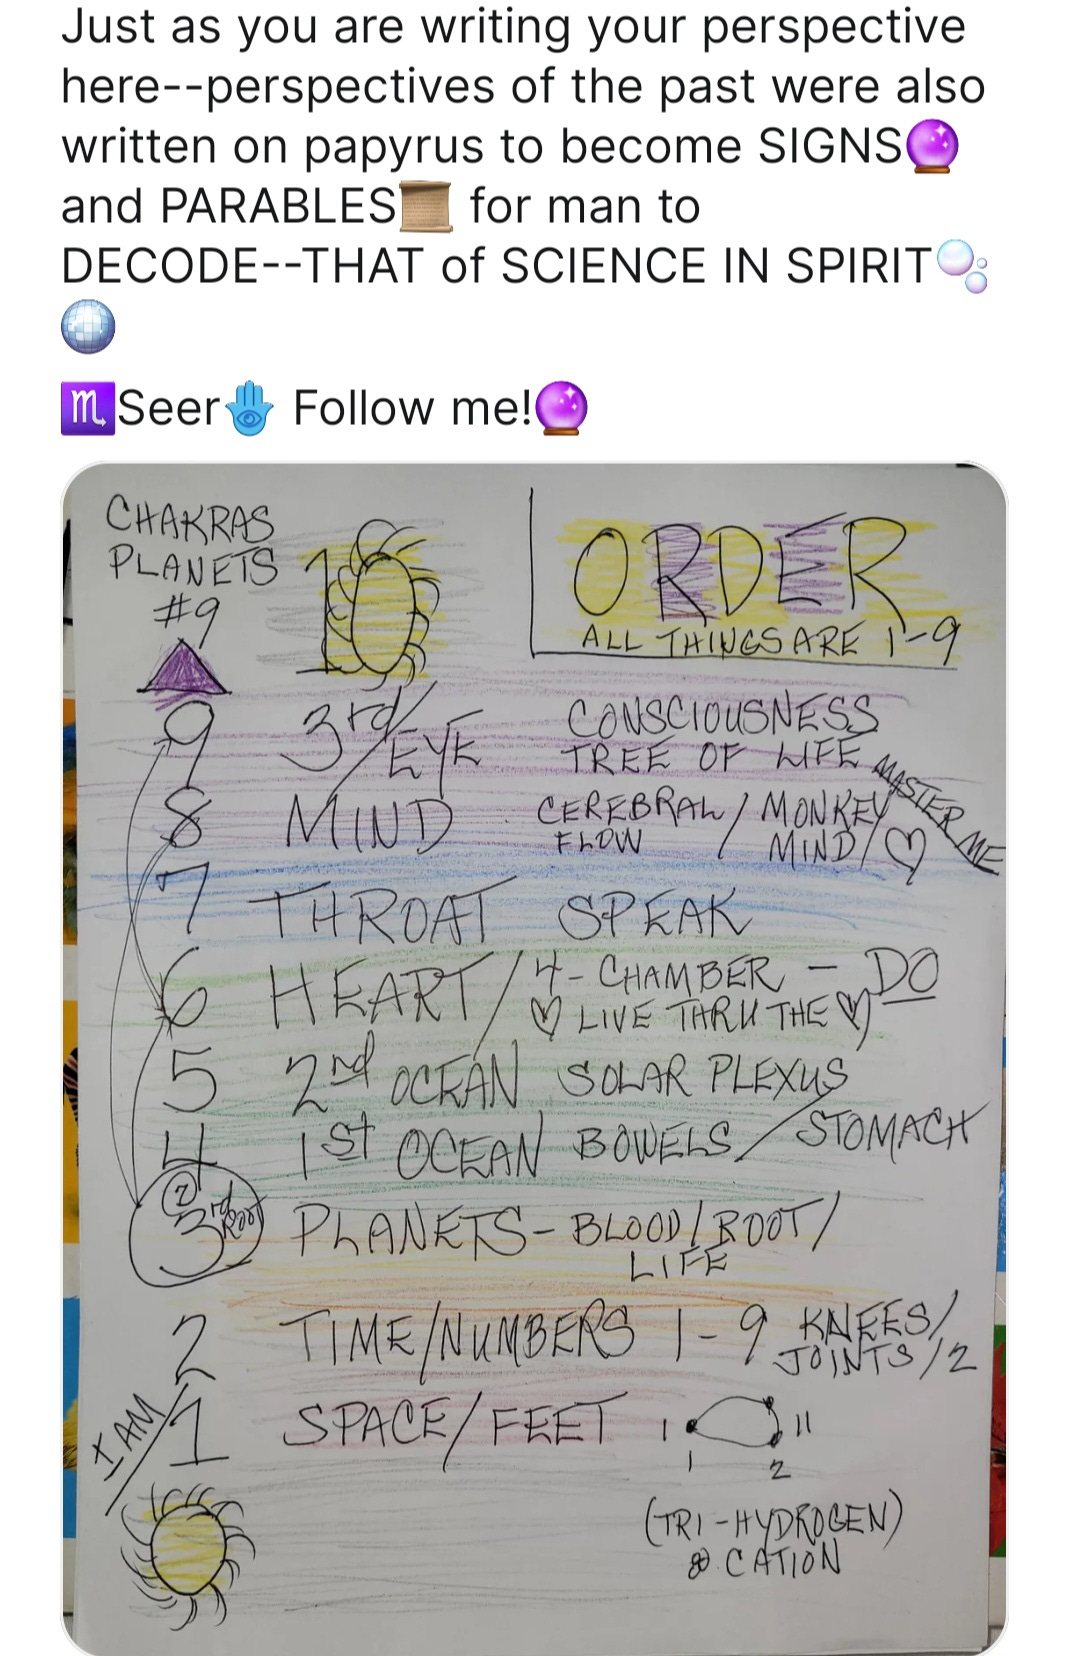 Just as you are writing your perspective
here--perspectives of the past were also
written on papyrus to become SIGNS🔮
and PARABLES📜 for man to
DECODE--THAT of SCIENCE IN SPIRIT🫧
🪩
♏Seer🪬 Follow me!🔮
CHAKRAS
PLANETS
#9
10
ORDER
ALL THINGS ARE 1-9
9 3rd/EYE CONSCIOUSNESS
TREE OF LIFE
MASTER ME
8 MIND CEREBRAL/MONKEY
FLOW MIND/♡
7 THROAT SPEAK
6 HEART/4-CHAMBER - DO
♡ LIVE THRU THE ♡
5 2nd OCEAN SOLAR PLEXUS
4 1st OCEAN BOWELS/STOMACH
2
3rd ROOT PLANETS-BLOOD/ROOT/
LIFE
2 TIME/NUMBERS 1-9 KNEES/
JOINTS/2
I AM/1 SPACE/FEET 1 11
1 2
(TRI-HYDROGEN)
CATION